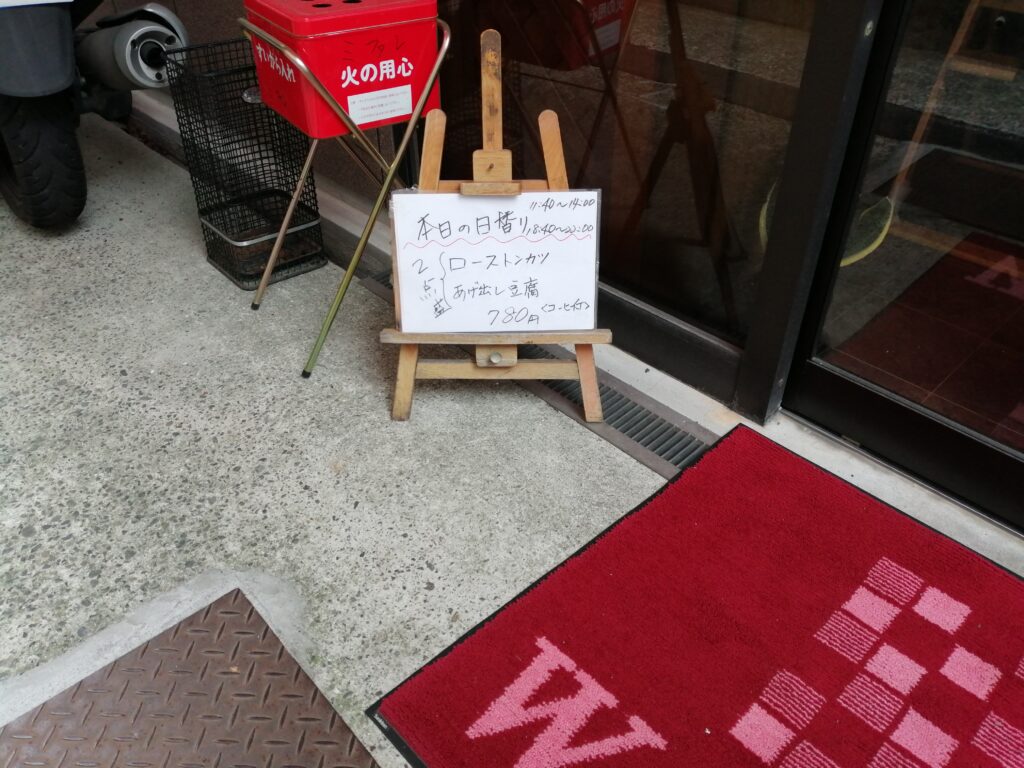 すいがら入れ
火の用心
本日の日替り
11:40〜14:00
18:40〜22:00
2点盛
ローストンカツ
あげ出し豆腐
780円
<コーヒ付>
W